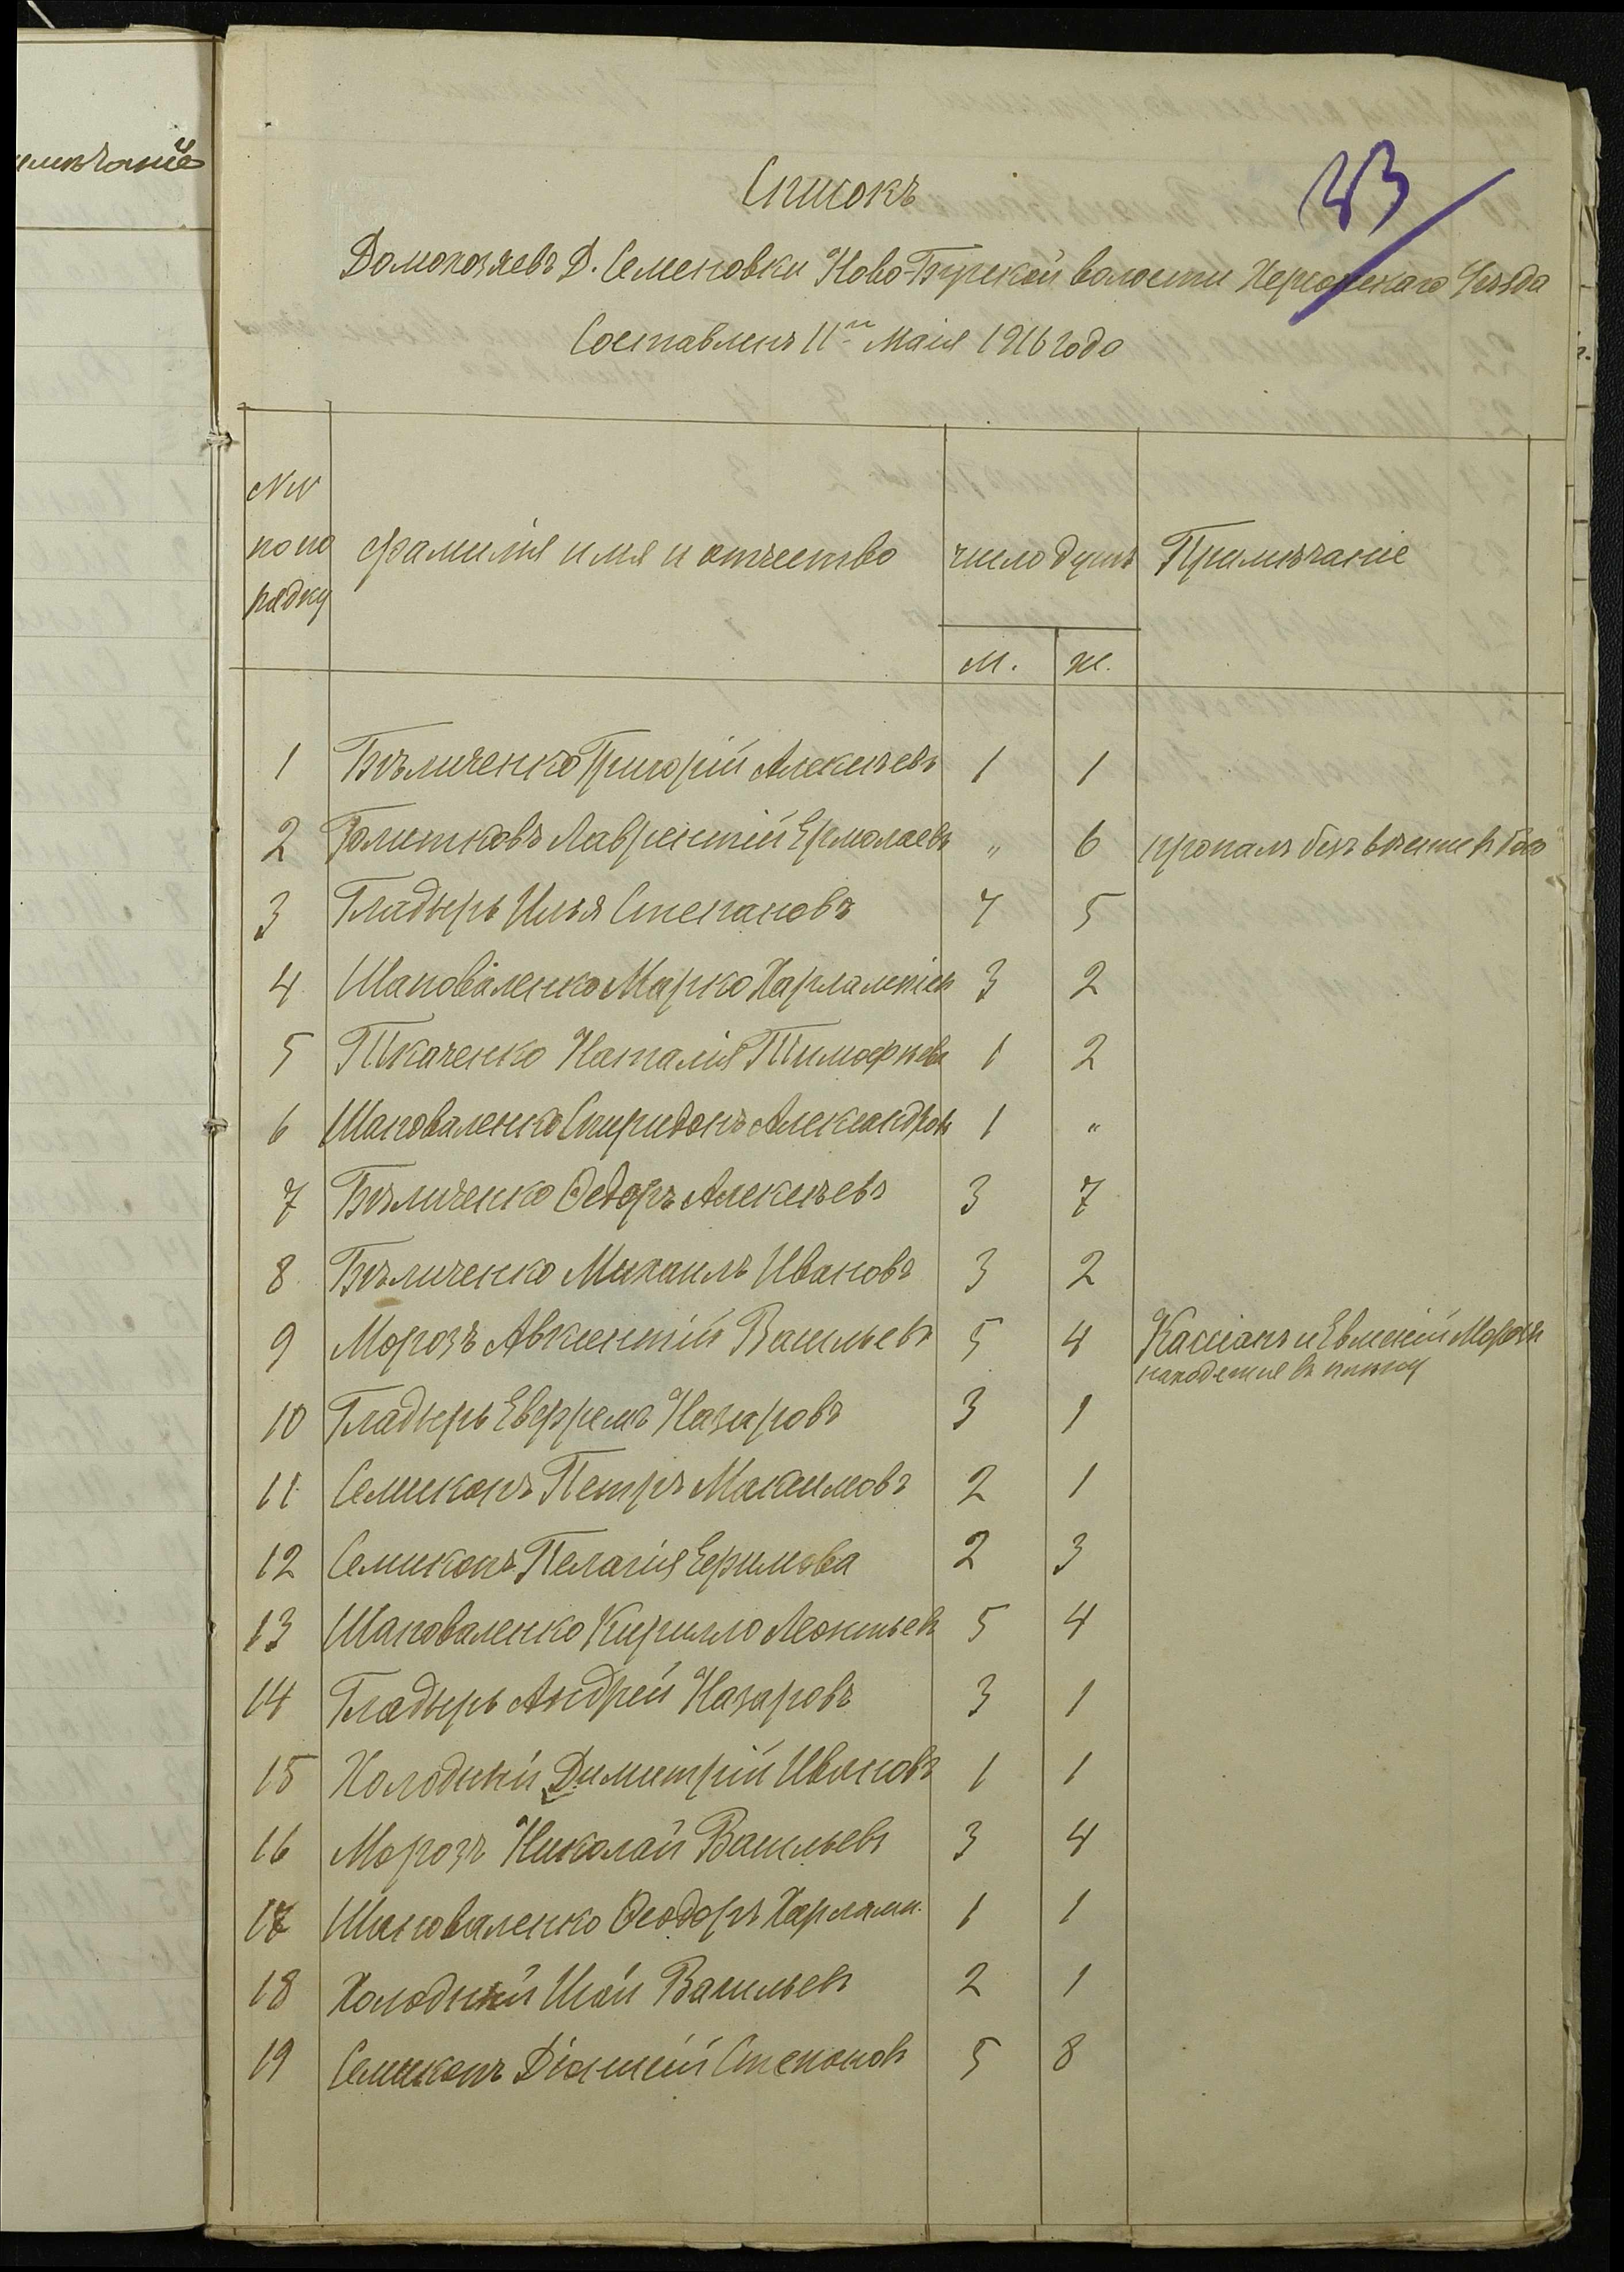 мѣчаніе
33
Списокъ
Домохозяевъ Д. Семеновки Ново-Бугской волости Херсонскаго Уѣзда
Составленъ 11го Маія 1916 года
№№ по порядку
фамилія имя и отчество
число душъ
Примѣчаніе
м.
ж.
1 Бѣличенко Григорій Алексѣевъ 1 1
2 Лаврентій Ермолаевъ " 6 пропалъ безъ вѣсти
3 Гладырь Илья Степановъ 7 5
4 Шаповаленко Марко Харлампіев 3 2
5 Ткаченко Наталія Тимофѣева 1 2
6 Шаповаленко Спиридонъ Александров 1 "
7 Бѣличенко Ѳедоръ Алексѣевъ 3 7
8 Бѣличенко Михаилъ Ивановъ 3 2
9 Морозъ Авксентій Васильевъ 5 4 Кассіанъ и Евмений Морозы
находятся въ плѣну
10 Гладырь Евфремъ Назаровъ 3 1
11 Семикопъ Петръ Максимовъ 2 1
12 Семикопъ Пелагія Ефимова 2 3
13 Шаповаленко Кирилло Леонтьевъ 5 4
14 Гладырь Андрей Назаровъ 3 1
15 Холодный Димитрій Ивановъ 1 1
16 Морозъ Николай Васильевъ 3 4
17 Шаповаленко Ѳеодоръ Харламп. 1 1
18 Холодный Васильевъ 2 1
19 Семикопъ Степановъ 5 8